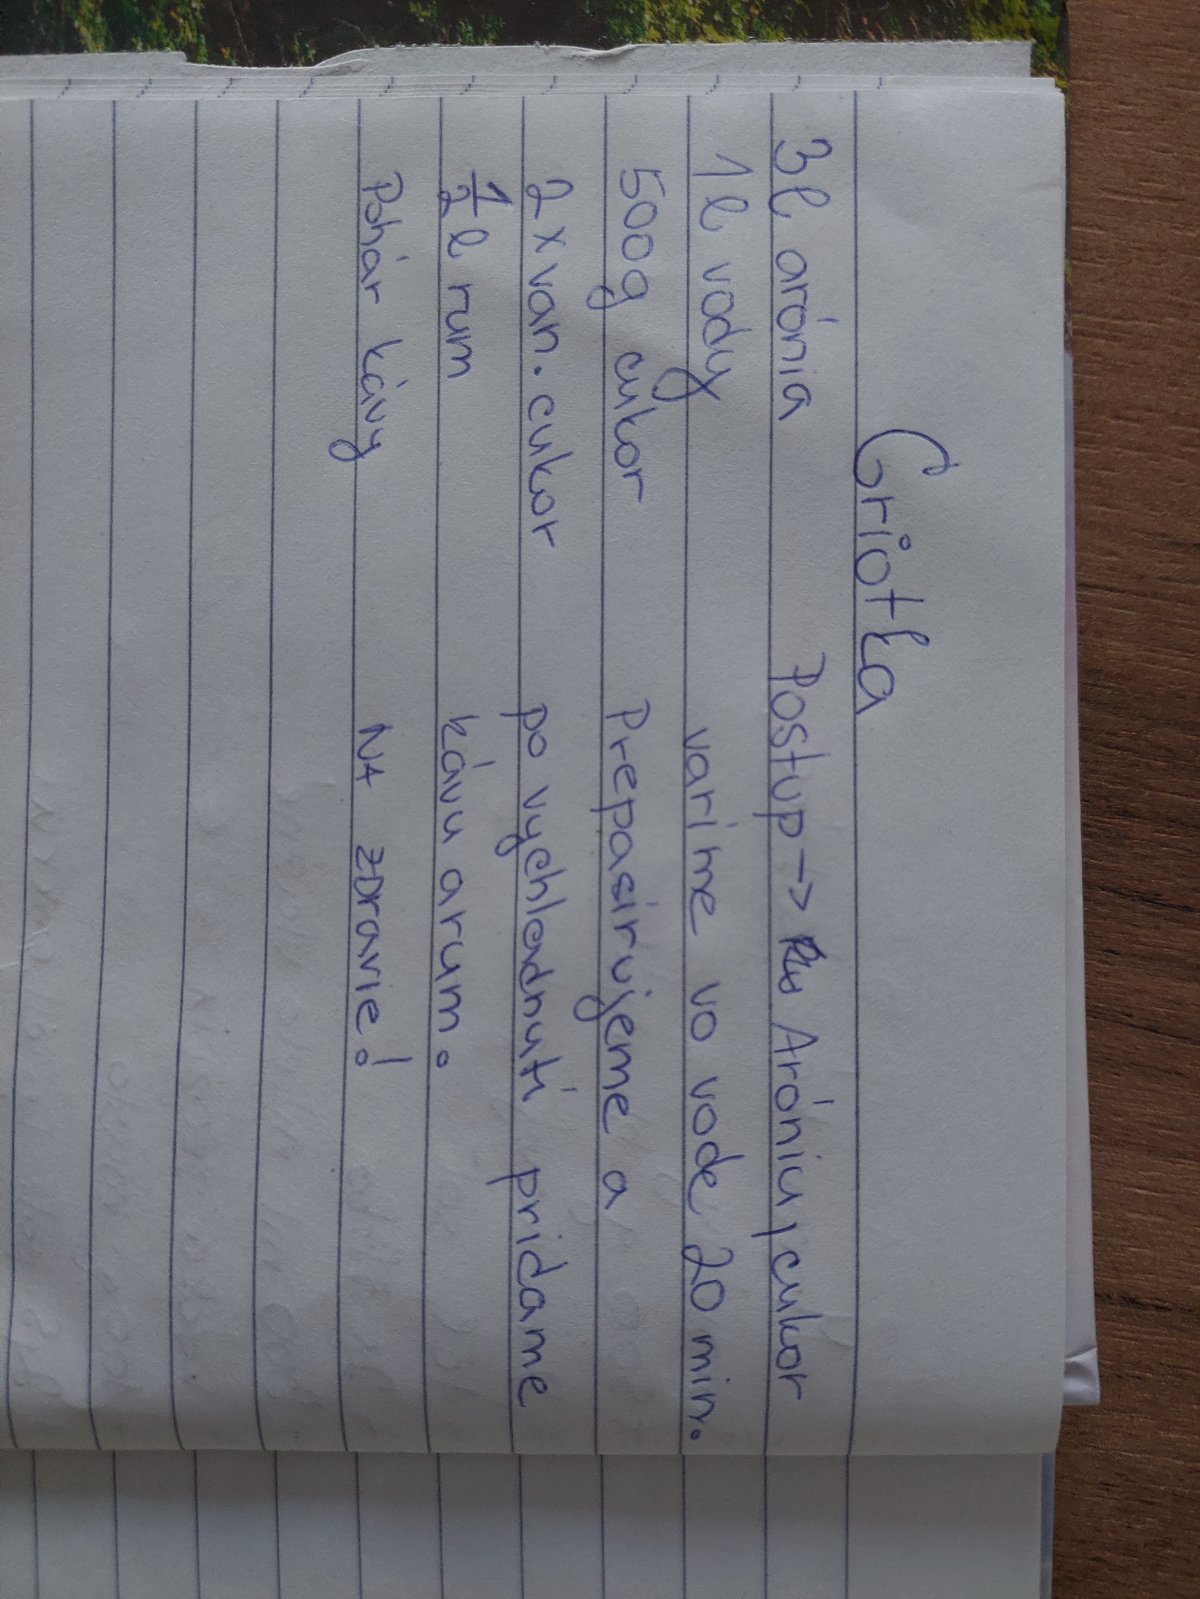 Griotka
3l arónia
1l vody
500g cukor
2x van. cukor
1/2 l rum
Pohár kávy
Postup -> Aróniu, cukor
varíme vo vode 20 min.
Prepasírujeme a
po vychladnutí pridame
kávu a rum.
NA ZDravie!